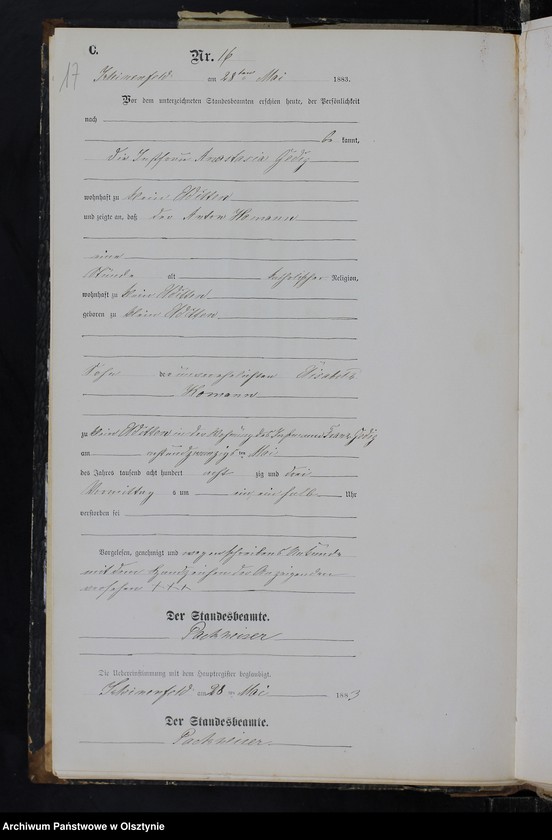 C.
Nr. 16
17
am 28ten Mai 1883.
Vor dem unterzeichneten Standesbeamten erschien heute, der Persönlichkeit
nach
be kannt,
die Instfrau Anastasia
wohnhaft zu Klein
und zeigte an, daß der Anton Homann
eine
Stunde alt katholischer Religion,
wohnhaft zu Klein
geboren zu Klein
Sohn der unverehelichten Elisabeth
Homann
zu Klein in der Wohnung des Instmann Franz
am achtundzwanzigsten Mai
des Jahres tausend acht hundert acht zig und drei
Vormittag s um ein ein halb Uhr
verstorben sei
Vorgelesen, genehmigt und wegen Schreibens Unkunde
mit dem Handzeichen des Anzeigenden
versehen +++
Der Standesbeamte.
Die Uebereinstimmung mit dem Hauptregister beglaubigt.
am 28 ten Mai 1883
Der Standesbeamte.
Archiwum Państwowe w Olsztynie